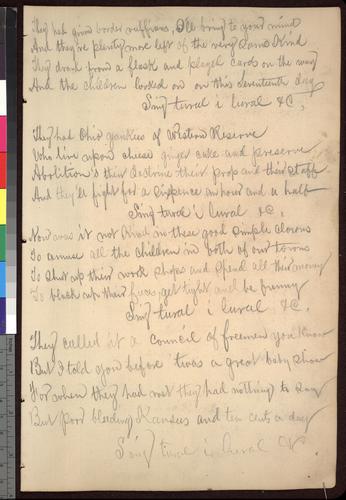 They had grim border ruffians, I'll bring to your mind
And they're plenty more left of the very same kind
They drank from a flask and played cards on the way
And the children looked on on this Seventeenth day
Sing tural i lural &C.
They had Ohio yankees of Western Reserve
Who live upon cheese ginger cake and preserve
Abolition's their doctrine their prop and their staff
And they'll fight for a sixpence an hour and a half
Sing tural i lural &c.
Now was it not kind in these good simple clowns
To amuse all the children in both of our towns
To shut up their work shops and spend all their money
To black up their faces, get tight and be funny
Sing tural i lural &C.
They called it a council of freemen you know
But I told you before 'twas a great baby show
For when they had met they had nothing to say
But poor bleeding Kansas and ten cents a day
Sing tural i lural &c